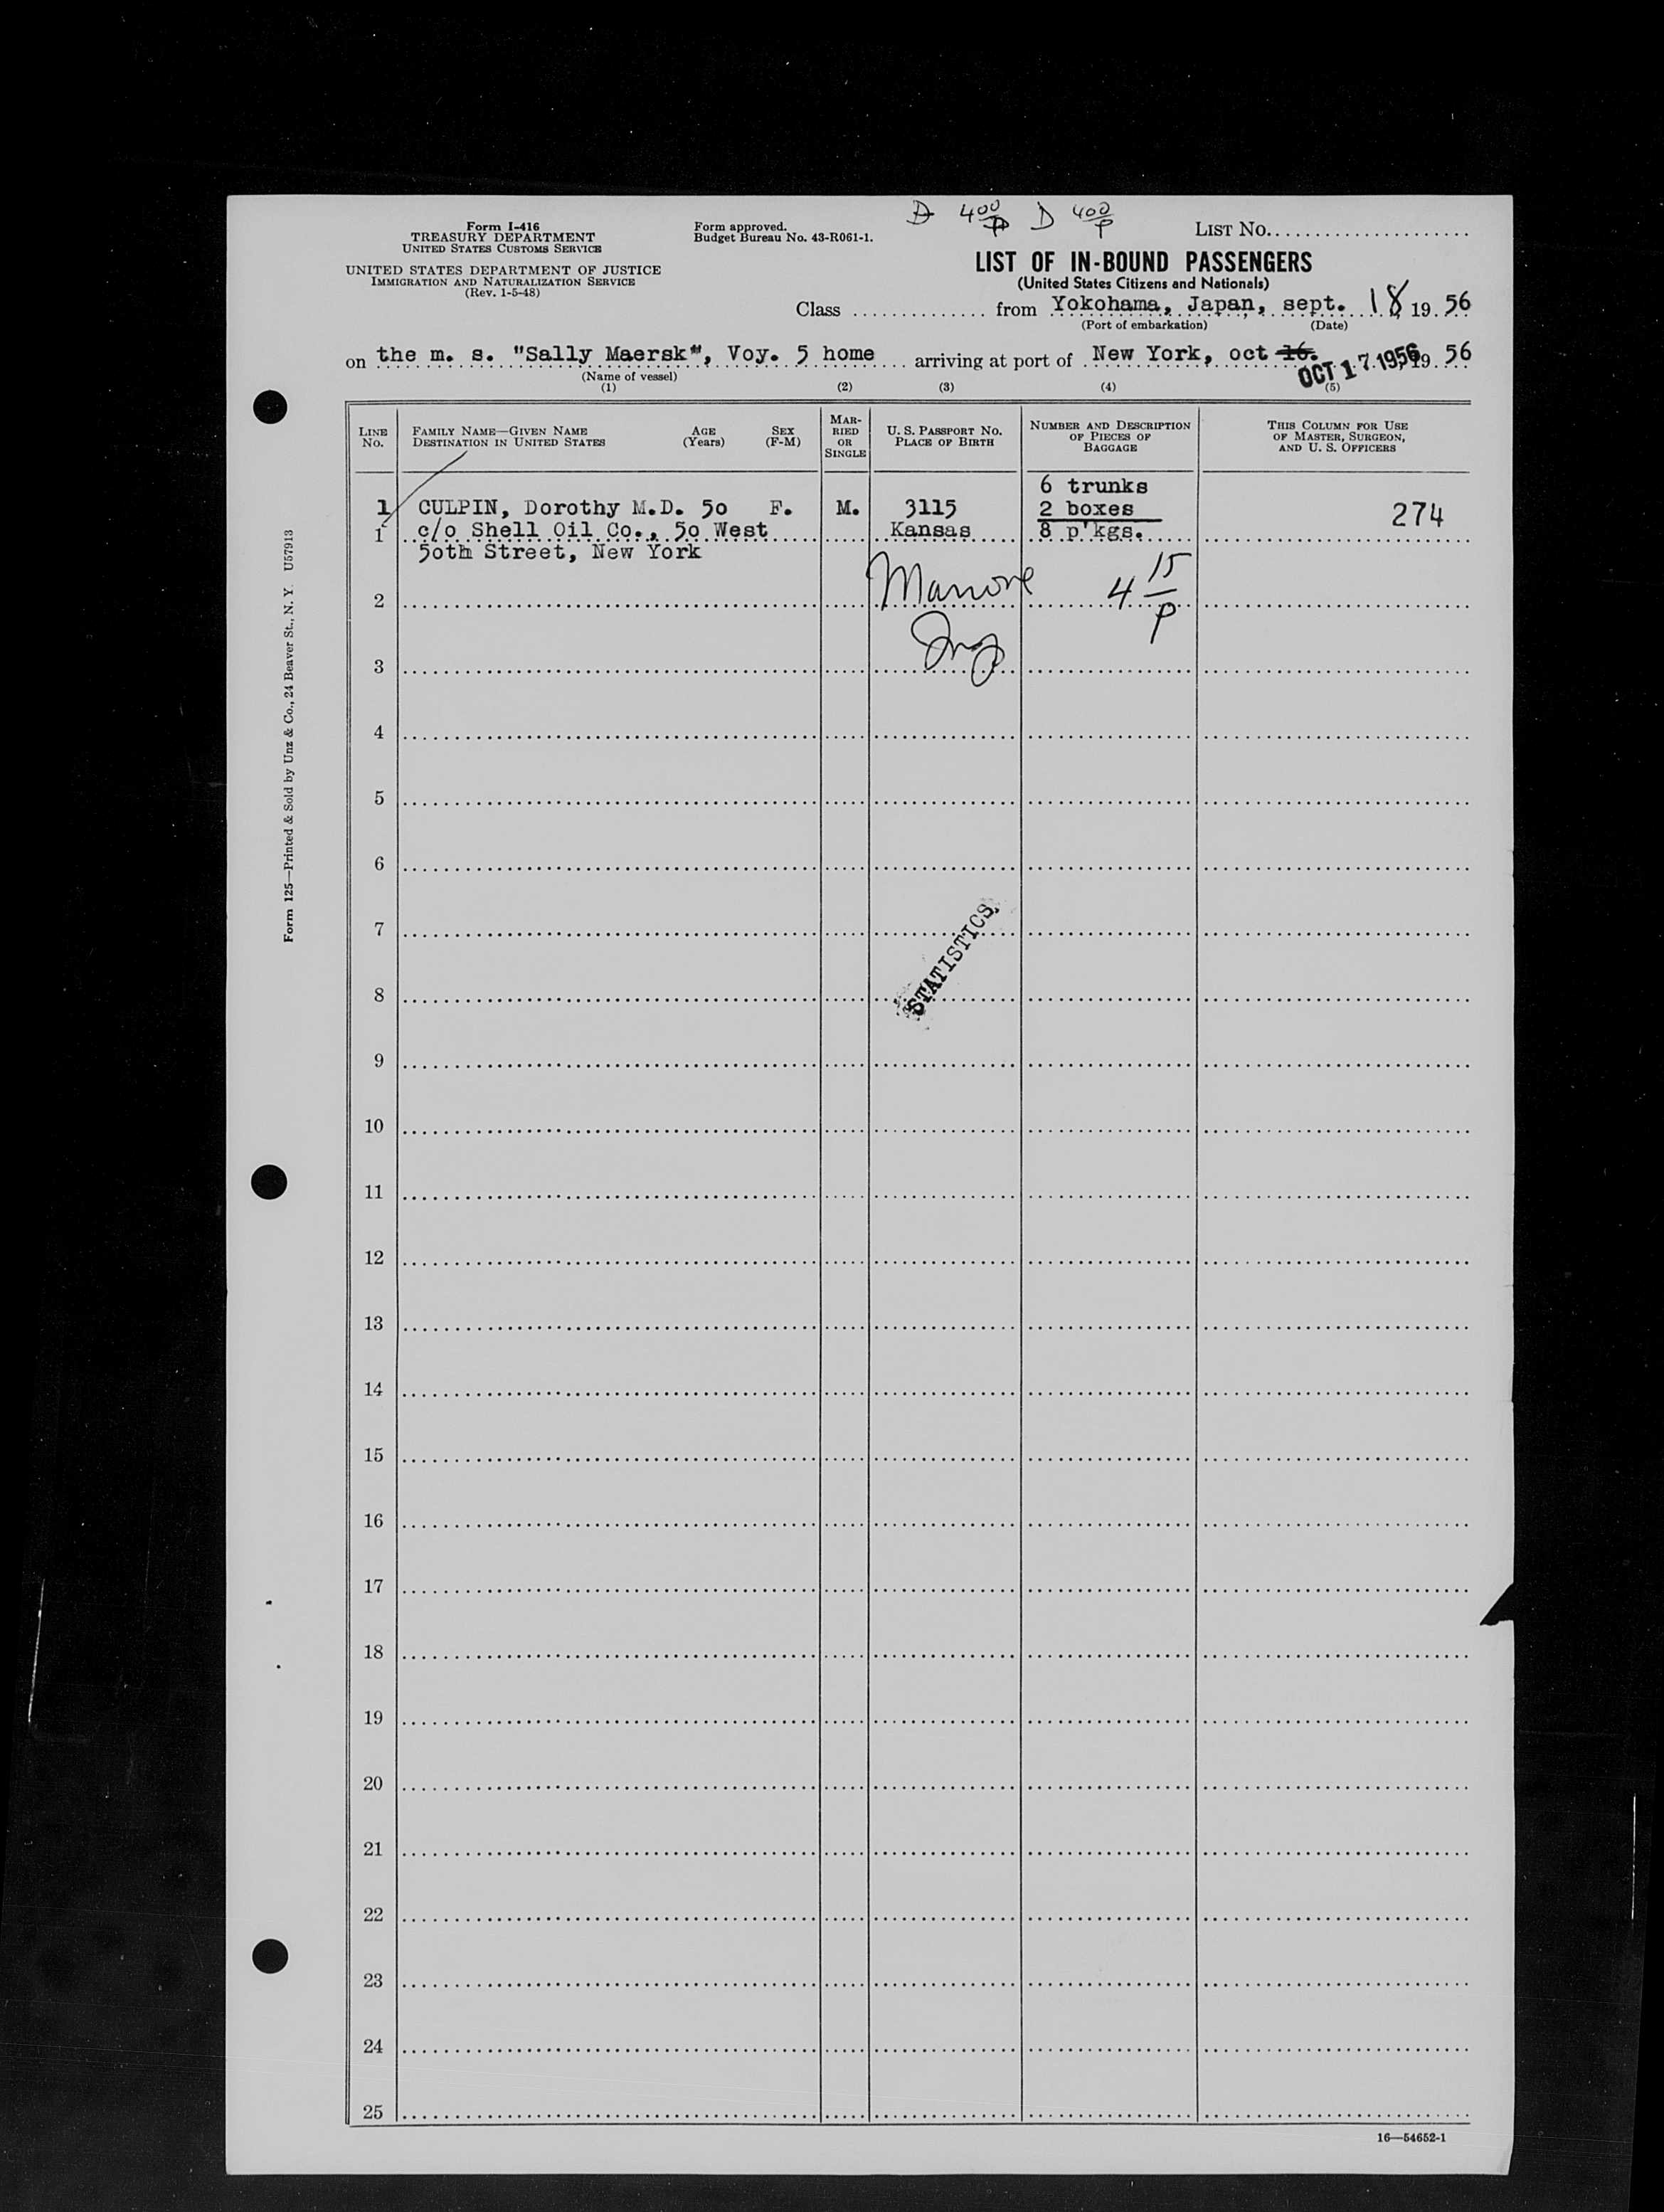 Form I-416
TREASURY DEPARTMENT
UNITED STATES CUSTOMS SERVICE
UNITED STATES DEPARTMENT OF JUSTICE
IMMIGRATION AND NATURALIZATION SERVICE
(Rev. 1-5-48)
Form approved.
Budget Bureau No. 43-R061-1.
D 400/P D 400/P
LIST NO.
LIST OF IN-BOUND PASSENGERS
(United States Citizens and Nationals)
Class from Yokohama, Japan, sept. 18, 19 56
(Port of embarkation) (Date)
on the m. s. "Sally Maersk", Voy. 5 home arriving at port of New York, oct 16. OCT 17 1956, 19 56
(Name of vessel)
(1) (2) (3) (4) (5)
LINE NO.
FAMILY NAME—GIVEN NAME
DESTINATION IN UNITED STATES
AGE (Years)
SEX (F-M)
MARRIED OR SINGLE
U. S. PASSPORT NO.
PLACE OF BIRTH
NUMBER AND DESCRIPTION OF PIECES OF BAGGAGE
THIS COLUMN FOR USE OF MASTER, SURGEON, AND U. S. OFFICERS
6 trunks
1 CULPIN, Dorothy M.D. 50 F. M. 3115 2 boxes 274
1 c/o Shell Oil Co., 50 West Kansas 8 p'kgs.
50th Street, New York
4 15/P
2
3
4
5
6
7
STATISTICS
8
9
10
11
12
13
14
15
16
17
18
19
20
21
22
23
24
25
16—54652-1
Form 125—Printed & Sold by Unz & Co., 24 Beaver St., N. Y. U57913